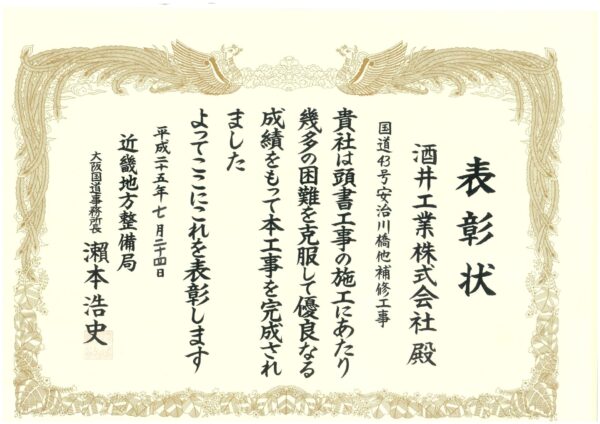 表彰状
酒井工業株式会社 殿
国道43号安治川橋他補修工事
貴社は頭書工事の施工にあたり
幾多の困難を克服して優良なる
成績をもって本工事を完成され
ました
よってここにこれを表彰します
平成二十五年七月二十四日
近畿地方整備局
大阪国道事務所長 瀬本浩史